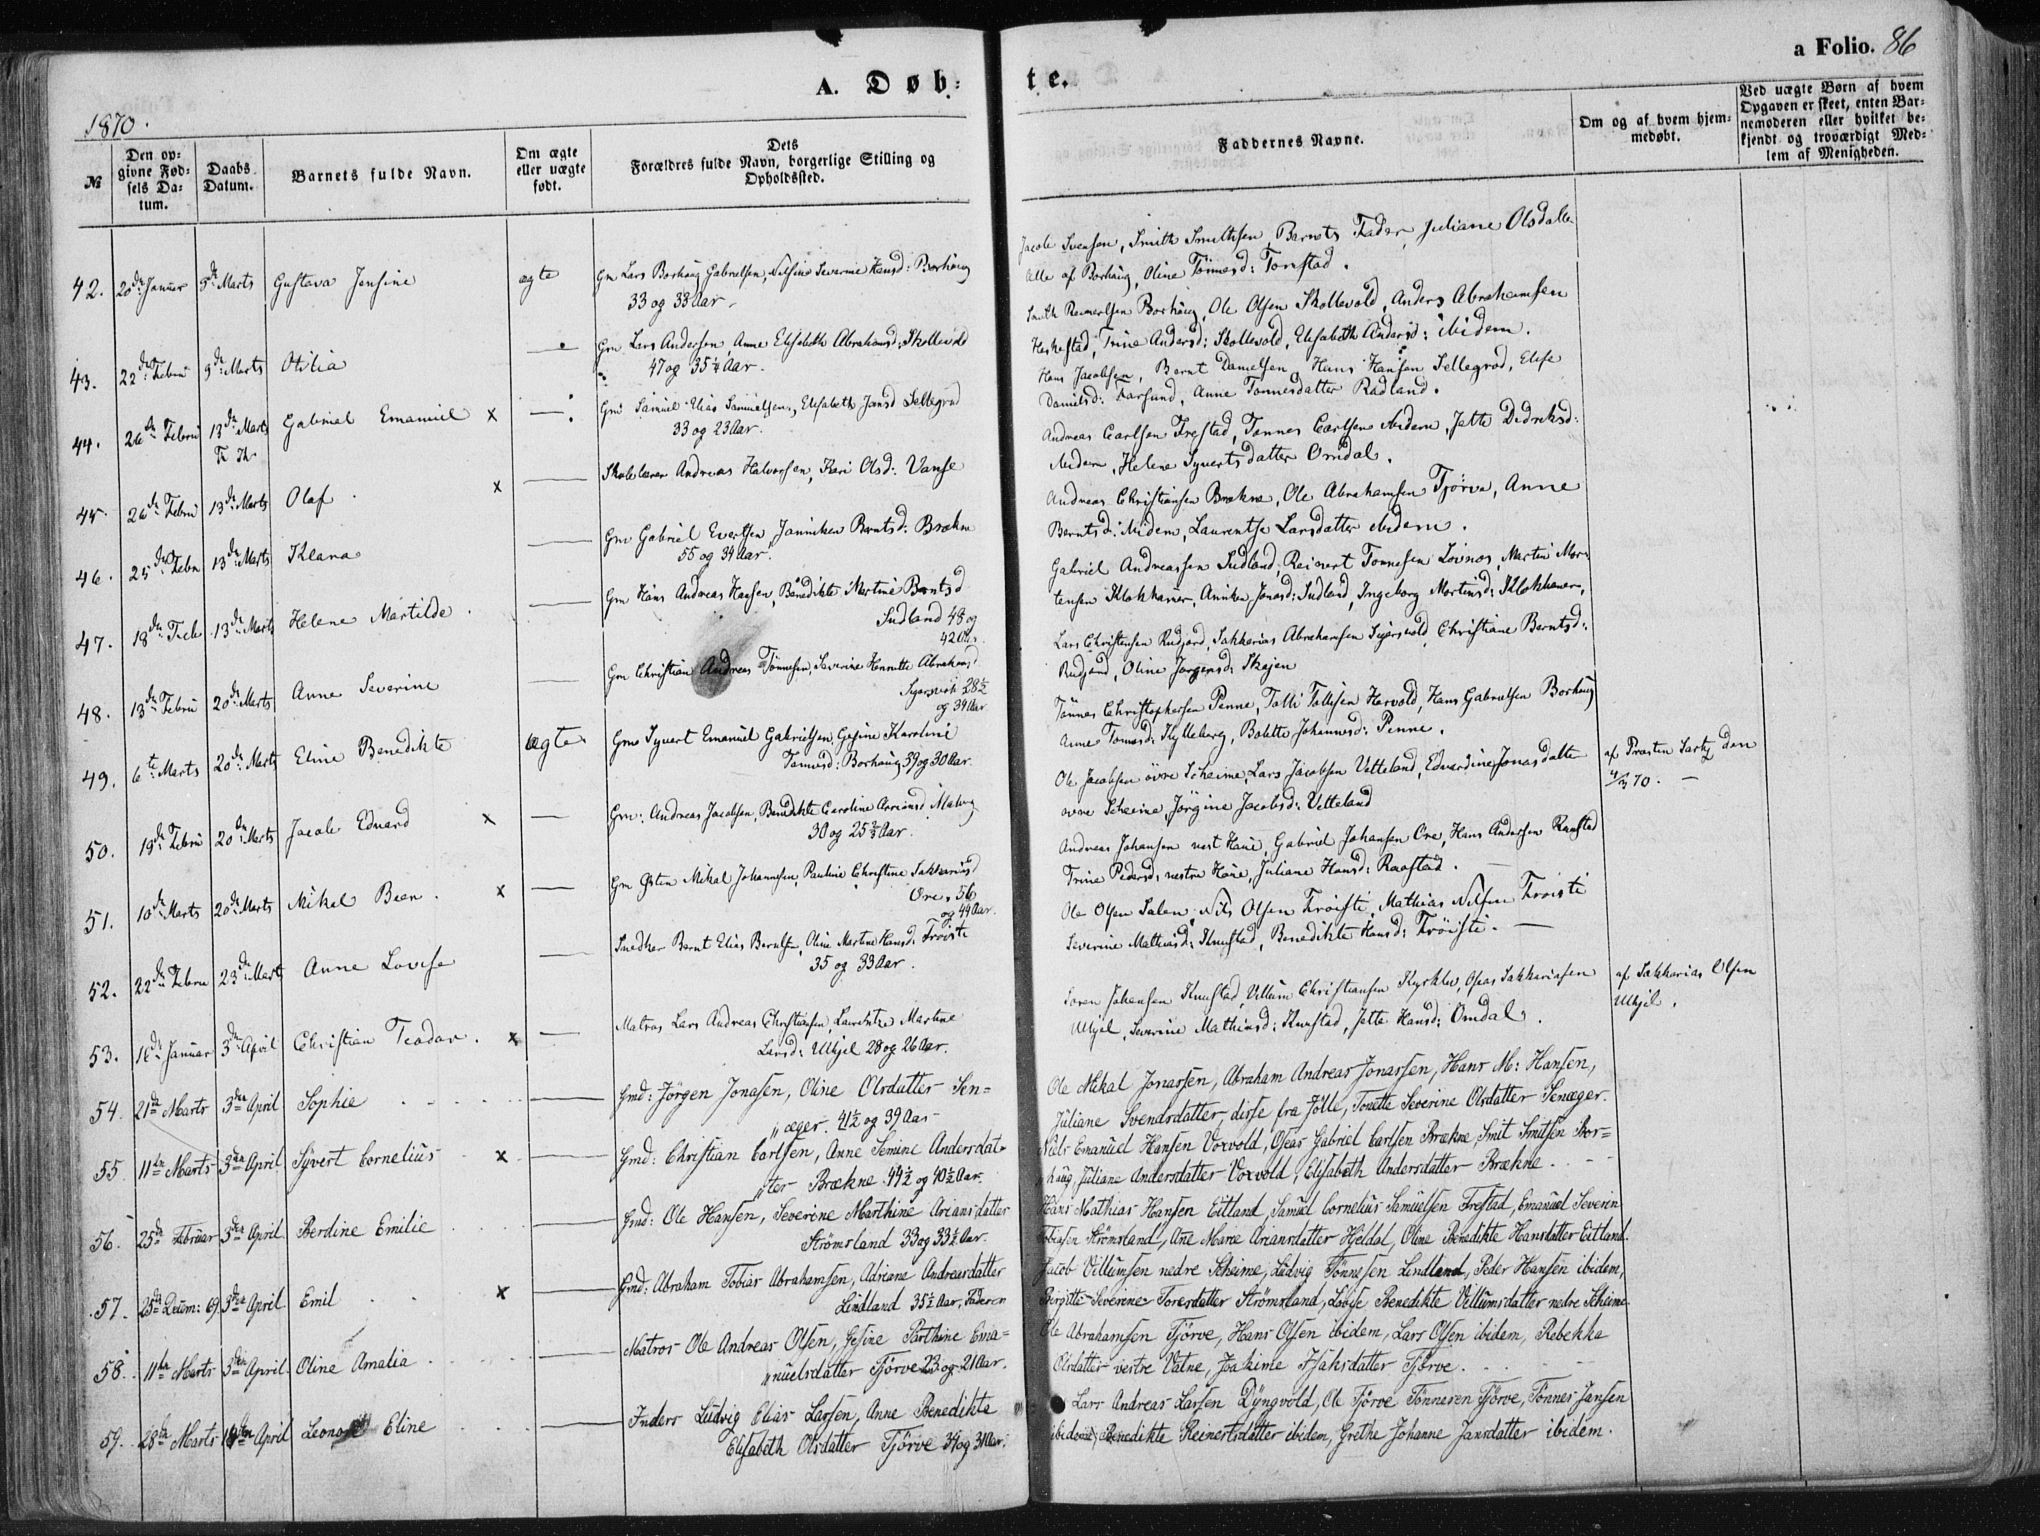 1870.
A. Døb-
te.
a Folio. 86
№
Den op-
givne Fød-
sels Da-
tum.
Daabs
Datum.
Barnets fulde Navn.
Om ægte
eller uægte
født.
Dets
Forældres fulde Navn, borgerlige Stilling og
Opholdssted.
Faddernes Navne.
Om og af hvem hjem-
medøbt.
Ved uægte Børn af hvem
Opgaven er skeet, enten Bar-
nemoderen eller hvilket be-
kjendt og troværdigt Med-
lem af Menigheden.
42. 20de Januar 5te Marts Gustava Jensine ægte Gm Lars Borhaug Gabrielsen, Nilsine Severine Hansd: Borhaug
33 og 33 Aar.
Jacob Svensen, Smith Smithsen, Barnets Fader, Juliane Olsdatter
Alle af Borhaug, Oline Tönnesd: Tomstad.
43. 22de Febru 9de Marts Otilia — Gm Lars Andersen Anne Elisabeth Abrahamsd: Skollevold
47 og 35¼ Aar.
Smith Reinertsen Borhaug, Ole Olsen Skollevold, Anders Abrahamsen
Heskestad, Trine Andersd: Skollevold, Elisabeth Andersd: ibidem.
44. 26de Febru 13de Marts Gabriel Emanuel x — Gm Samuel Elias Samuelsen, Elisabeth Jansd Sellegrod
33 og 23 Aar.
Hans Jacobsen, Bernt Danielsen, Hans Hansen Sellegrod, Elise
Danielsd: Farsund, Anne Tonnesdatter Rødland.
45. 26de Febru 13de Marts Olaf x — Skolelærer Andreas Halvorsen, Kari Olsd: Vanse
Andreas Carlsen Frestad, Tønnes Carlsen ibidem, Jette Didriksd:
ibidem, Helene Syvertsdatter Omdal.
46. 25de Febru 13de Marts Klara — Gm Gabriel Evertsen Janniken Berntsd: Brækne
55 og 34 Aar.
Andreas Christiansen Brækne, Ole Abrahamsen Tjörve, Anne
Berntsd: ibidem, Laurentse Larsdatter ibidem.
47. 18de Feb 13de Marts Helene Martilde. — Gm Hans Andreas Hansen, Benedikte Martine Berntsd
Sudland 48 og
42 Aar.
Gabriel Andreassen Sudland, Reinert Tonnesen Lovnes, Martin Mor-
tensen Klokhammer, Aniken Jonasd: Sudland, Ingeborg Mortensd: Klokhamer,
48. 13de Febru 20de Marts Anne Severine — Gm Christian Andreas Tönnesen, Severine Henriette Abrahamsd
28½
og 39 Aar
Lars Christensen Rudjord, Sakkarias Abrahamsen Sigersvold, Christiane Berntsd:
Rudjord, Oline Jørgensd: Skejen
49. 6te Marts 20de Marts Eline Benedikte ægte Gm Syvert Emanuel Gabrielsen, Gesine Karoline
Tønnesd: Borhaug 39 og 30 Aar.
Tönnes Christophersen Penne, Tolli Tollisen Hervold, Hans Gabrielsen Borhaug
Anne Tomasd: Kylleberg, Bolette Johannesd: Penne.
50. 19de Febru 20de Marts Jacob Edvard x — Gm: Andreas Jacobsen, Benedikte Caroline Arriansd: Malvig
30 og 25⅔ Aar.
Ole Jacobsen övre Scheime, Lars Jacobsen Vetteland, Edvardine Jonasdatter
övre Scheime, Jörgine Jacobsd: Vetteland
af Præsten Sartz den
4/3 70. —
51. 10de Marts 20de Marts Mikal Been. x — Gm Østen Mikal Johannesen, Pauline Christine Sakkariasd
Øre, 56
og 44 Aar.
Andreas Johansen vest Haue, Gabriel Johansen Øre, Hans Andersen Raastad
Trine Pedersd: vestre Haue, Juliane Hansd: Raastad. —
52. 22de Febru 23de Marts Anne Lovise — Snedker Bernt Elias Berntsen, Oline Martine Hansd: Fröisti
35 og 33 Aar.
Ole Olsen Salen, Nils Olsen Fröisti, Mathias Nilsen Fröisti
Severine Mathiasd: Knustad, Benedikte Hansd: Fröisti. —
53. 16de Januar 3de April Christian Teodor. x — Matros Lars Andreas Christiansen Laurentze Martine
Larsd: Ulgjel 28 og 26 Aar.
Søren Johansen Knustad, Villum Christiansen Kjørkleiv, Oseas Sakkariasen
Ulgjel, Severine Mathiasd: Knustad, Jette Hansd: Omdal.
af Sakkarias Olsen
Ulgjel.
54. 21de Marts 3den April Sophie — Gmd: Jörgen Jonasen, Oline Olsdatter Sen-
„æger. 41½ og 39 Aar
Ole Mikal Jonassen, Abraham Andreas Jonassen, Hans M: Hansen,
Juliane Svendsdatter, disse fra Jölle, Tonette Severine Olsdatter Senæger.
55 11te Marts 3den April Syvert Cornelius x — Gmd: Christian Carlsen, Anne Semine Andersdat-
„ter Brækne. 44½ og 40½ Aar.
Niels Emanuel Hansen Vorvold, Oseas Gabriel Carlsen Brækne, Smit Smitsen Bor-
haug, Juliane Andersdatter Vorvold, Elisabeth Andersdatter Brækne.
56. 25de Februar 3den April Berdine Emilie — Gmd: Ole Hansen, Severine Marthine Ariansdatter
Strömsland 33 og 33½ Aar.
Hans Mathias Hansen Eitland, Samuel Cornelius Samuelsen Frestad, Emanuel Severin
Tobiasen Strömsland, Ane Marie Ariansdatter Hjeldal, Oline Benedikte Hansdatter Eitland.
57. 25de Decem: 69 3den April Emil x — Gmd: Abraham Tobias Abrahamsen, Adriane Andreasdatter
Lindland 35½ Aar, Faderen
Jacob Villumsen nedre Scheime, Ludvig Tönnesen Lindland, Peder Hansen ibidem,
Birgitte Severine Toresdatter Strömsland, Lovise Benedikte Villumsdatter nedre Scheime
58. 11te Marts 3den April Oline Amalia — Matros Ole Andreas Olsen, Gesine Parthine Ema-
„nuelsdatter Tjörve 23 og 21 Aar.
Ole Abrahamsen Tjörve, Hans Olsen ibidem, Lars Olsen ibidem, Rebekka
Olsdatter vestre Vatne, Joakime Isaksdatter Tjörve.
59. 28de Marts April Leonore Eline — Inders Ludvig Elias Larsen, Anne Benedikte
Elisabeth Olsdatter Tjörve 34 og 31 Aar.
Lars Andreas Larsen Dyngvold, Ole Tjörve Tönnesen Tjörve, Tönnes Jansen
ibidem, Benedikte Reinertsdatter ibidem, Grethe Johanne Jansdatter ibidem.